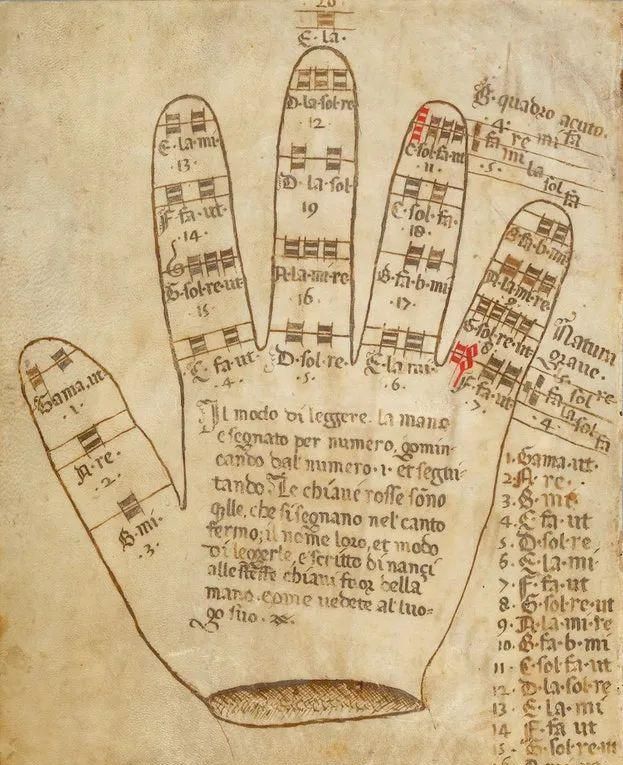 20
E·la·
D·la·sol·re
12
E·la·mi·
13·
C·sol·fa·ut
11
B·quadro acuto·
·4· re mi fa
fa mi la sol fa
·5·
D·la·sol·
19
F·fa·ut·
·14·
C·sol·fa·
18·
B·fa·b·mi·
G·sol·re·ut
15
A·la·mi·re
16·
B·fa·b·mi
·17·
A·la·mi·re·
9·
G·sol·re·ut
8
Natura
grave·
C·fa·ut·
·4·
D·sol·re·
·5·
E·la·mi·
·6·
F·fa·ut
·7·
·4·
sol re
fa la sol fa
Gama·ut·
·1·
A·re·
·2·
B·mi·
·3·
Il modo di leggere· la mano
e segnato per numero, gomin-
cando dal numero·1· et segui-
tando· Le chiavi rosse sono
qlle, che si segnano nel canto
fermo; il nome loro, et modo
di leggerle, e scritto di nanci
alle stesse chiavi fuor della
mano· come vedete al luo-
go suo·
1·Gama·ut·
2·A·re·
3·B·mi·
4·C·fa·ut
5·D·sol·re
6·E·la·mi
7·F·fa·ut
8·G·sol·re·ut
9·A·la·mi·re
10·B·fa·b·mi
11·C·sol·fa·ut
12·D·la·sol·re
13·E·la·mi
14·F·fa·ut
15·G·sol·re·ut